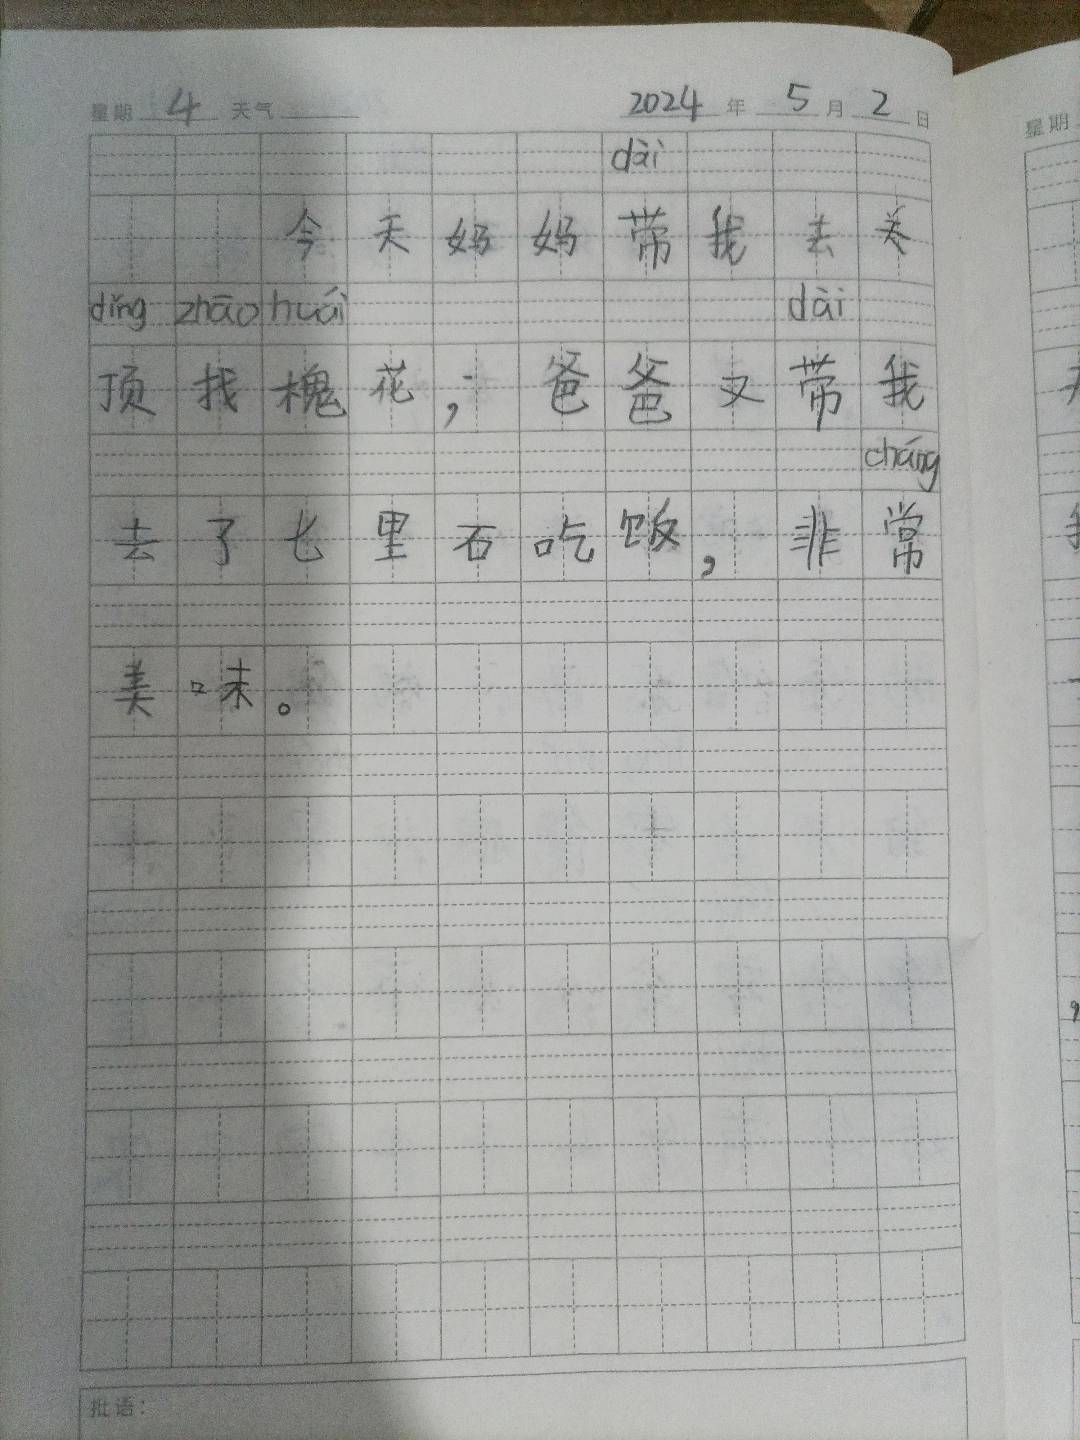 星期 4 天气 2024 年 5 月 2 日
dài
今天妈妈带我去关
dǐng zhāo huái dài
顶找槐花，爸爸又带我
cháng
去了七里石吃饭，非常
美味。
批语：
星期